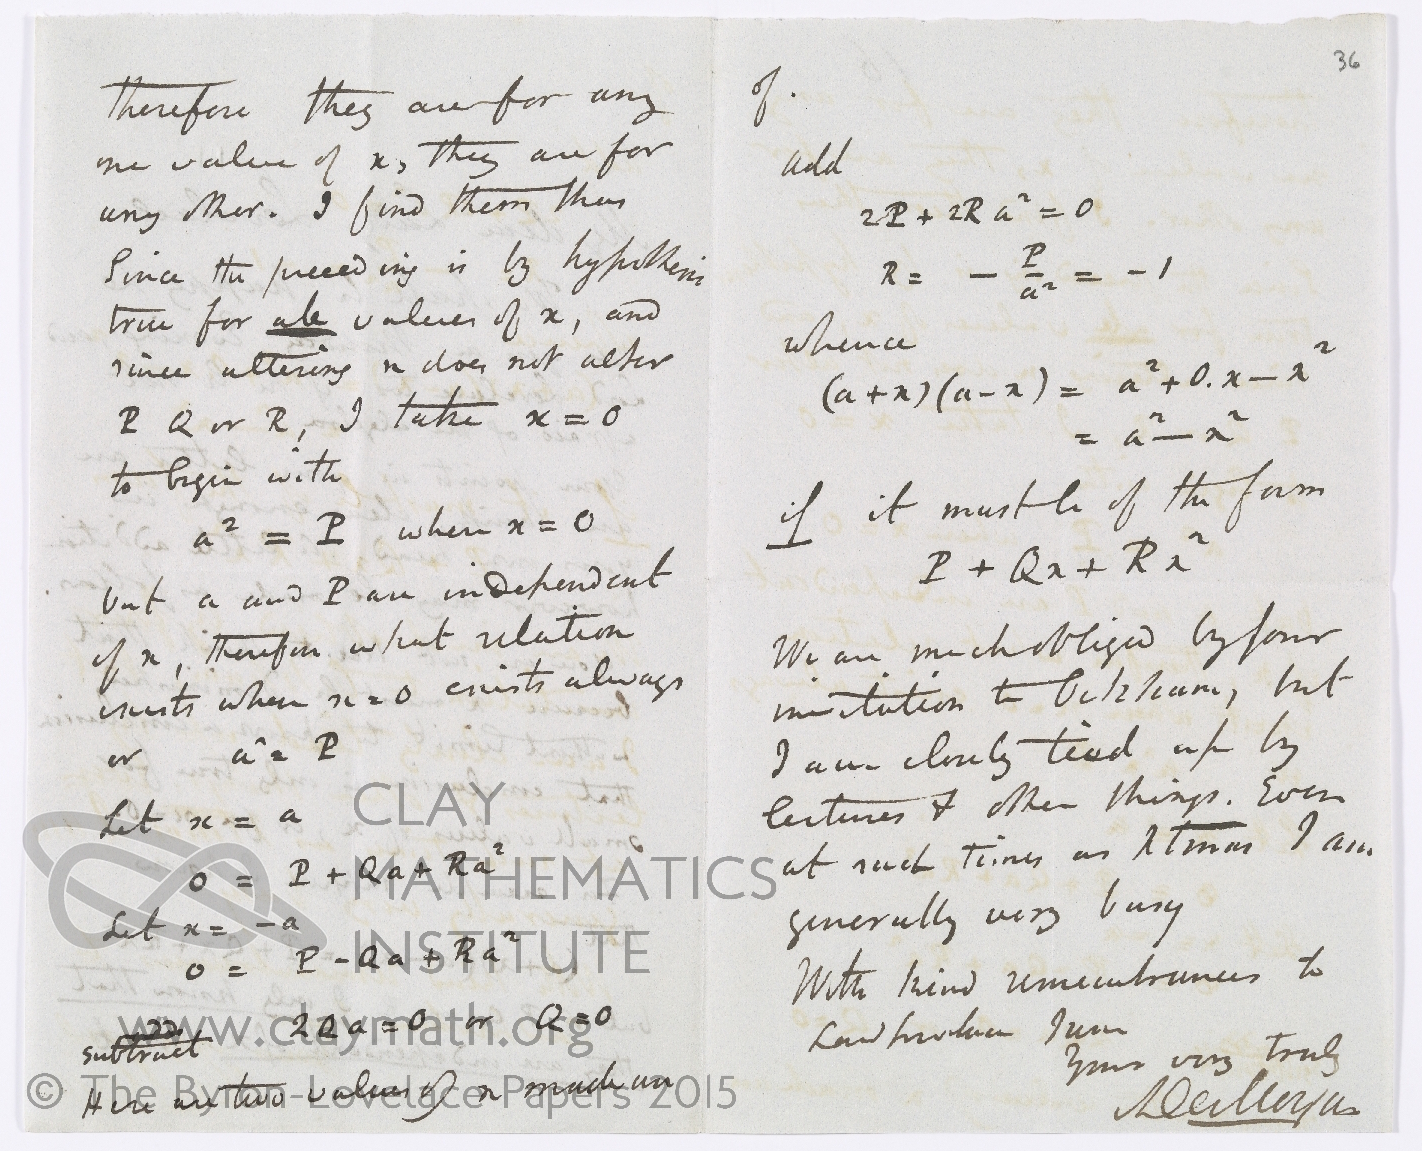 therefore they are for any
one value of x, they are for
any other. I find them thus
Since the preceding is by hypothesis
true for all values of x, and
since altering x does not alter
P Q or R, I take x = 0
to begin with
a² = P when x = 0
but a and P are independent
of x, therefore what relation
exists when x = 0 exists always
or a² = P
Let x = a
0 = P + Qa + Ra²
Let x = -a
0 = P - Qa + Ra²
subtract 2Qa = 0 or Q = 0
Here are two values of x made use
36
of.
add
2P + 2Ra² = 0
R = - P/a² = -1
whence
(a+x)(a-x) = a² + 0.x - x²
= a² - x²
if it must be of the form
P + Qx + Rx²
We are much obliged by your
invitation to Ockham, but
I am closely tied up by
lectures & other things. Even
at such times as Xtmas I am
generally very busy
With kind remembrances to
Lord Lovelace I am
Yours very truly
ADeMorgan
CLAY
MATHEMATICS
INSTITUTE
www.claymath.org
© The Byron-Lovelace Papers 2015